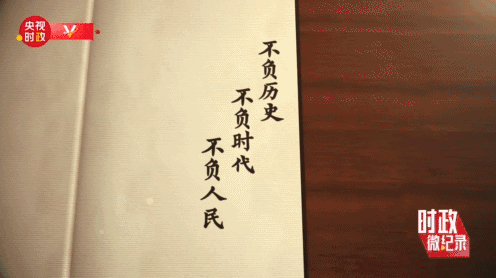 央视
时政
不负历史
不负时代
不负人民
时政
微纪录